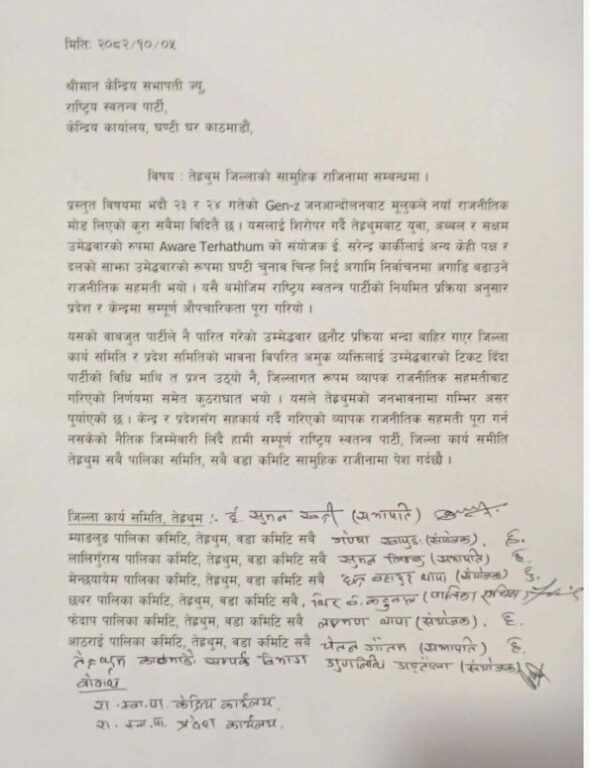 मिति: २०८२/१०/०५
श्रीमान केन्द्रिय सभापती ज्यू,
राष्ट्रिय स्वतन्त्र पार्टी,
केन्द्रिय कार्यालय, घण्टी घर काठमाडौं,
विषय : तेह्रथुम जिल्लाको सामुहिक राजिनामा सम्बन्धमा ।
प्रस्तुत विषयमा भदौ २३ र २४ गतेको Gen-z जनआन्दोलनबाट मूलुकले नयाँ राजनीतिक
मोड लिएको कुरा सबैमा बिदितै छ । यसलाई शिरोपर गर्दै तेह्रथुमबाट युवा, अब्बल र सक्षम
उमेद्बवारको रुपमा Aware Terhathum को संयोजक ई. सरेन्द्र कार्कीलाई अन्य केही पक्ष र
दलको साझा उमेद्बवारको रूपमा घण्टी चुनाव चिन्ह लिई अगामि निर्वाचनमा अगाडि बढाउने
राजनीतिक सहमती भयो । यसै बमोजिम राष्ट्रिय स्वतन्त्र पार्टीको नियमित प्रक्रिया अनुसार
प्रदेश र केन्द्रमा सम्पूर्ण औपचारिकता पूरा गरियो ।
यसको बाबजुत पार्टीले नै पारित गरेको उम्मेद्बवार छनौट प्रक्रिया भन्दा बाहिर गएर जिल्ला
कार्य समिति र प्रदेश समितिको भाबना विपरित अमुक व्यक्तिलाई उम्मेद्बवारको टिकट दिंदा
पार्टीको विधि माथि त प्रश्न उठ्यो नै, जिल्लागत रूपम व्यापक राजनीतिक सहमतीबाट
गरिएको निर्णयमा समेत कुठराघात भयो । यसले तेह्रथुमको जनभावनामा गम्भिर असर
पुर्याएको छ । केन्द्र र प्रदेशसंग सहकार्य गर्दै गरिएको व्यापक राजनीतिक सहमती पूरा गर्न
नसकेको नैतिक जिम्मेवारी लिदै हामी सम्पूर्ण राष्ट्रिय स्वतन्त्र पार्टी, जिल्ला कार्य समीति
तेह्रथुम सबै पालिका समिति, सबै वडा कमिटि सामुहिक राजीनामा पेश गर्दछौ ।
जिल्ला कार्य समिति, तेह्रथुम :- ई. सुमन (सभापति)
म्याङलुङ पालिका कमिटि, तेह्रथुम, वडा कमिटि सबै (संयोजक)
लालिगुँरास पालिका कमिटि, तेह्रथुम, वडा कमिटि सबै सुमन लिम्बु (सभापति)
मेन्छयायेम पालिका कमिटि, तेह्रथुम, वडा कमिटि सबै बहादुर थापा (संयोजक)
छथर पालिका कमिटि, तेह्रथुम, वडा कमिटि सबै, (पालिका सचिव)
फेदाप पालिका कमिटि, तेह्रथुम, वडा कमिटि सबै लक्ष्मण थापा (संयोजक)
आठराई पालिका कमिटि, तेह्रथुम, वडा कमिटि सबै चेतन गौतम (सभापति)
तेह्रथुम काठमाडौं सम्पर्क विभाग (संयोजक)
बोधार्थ
रा.स्व.पा. केन्द्रिय कार्यलय,
रा.स्व.पा. प्रदेश कार्यलय,